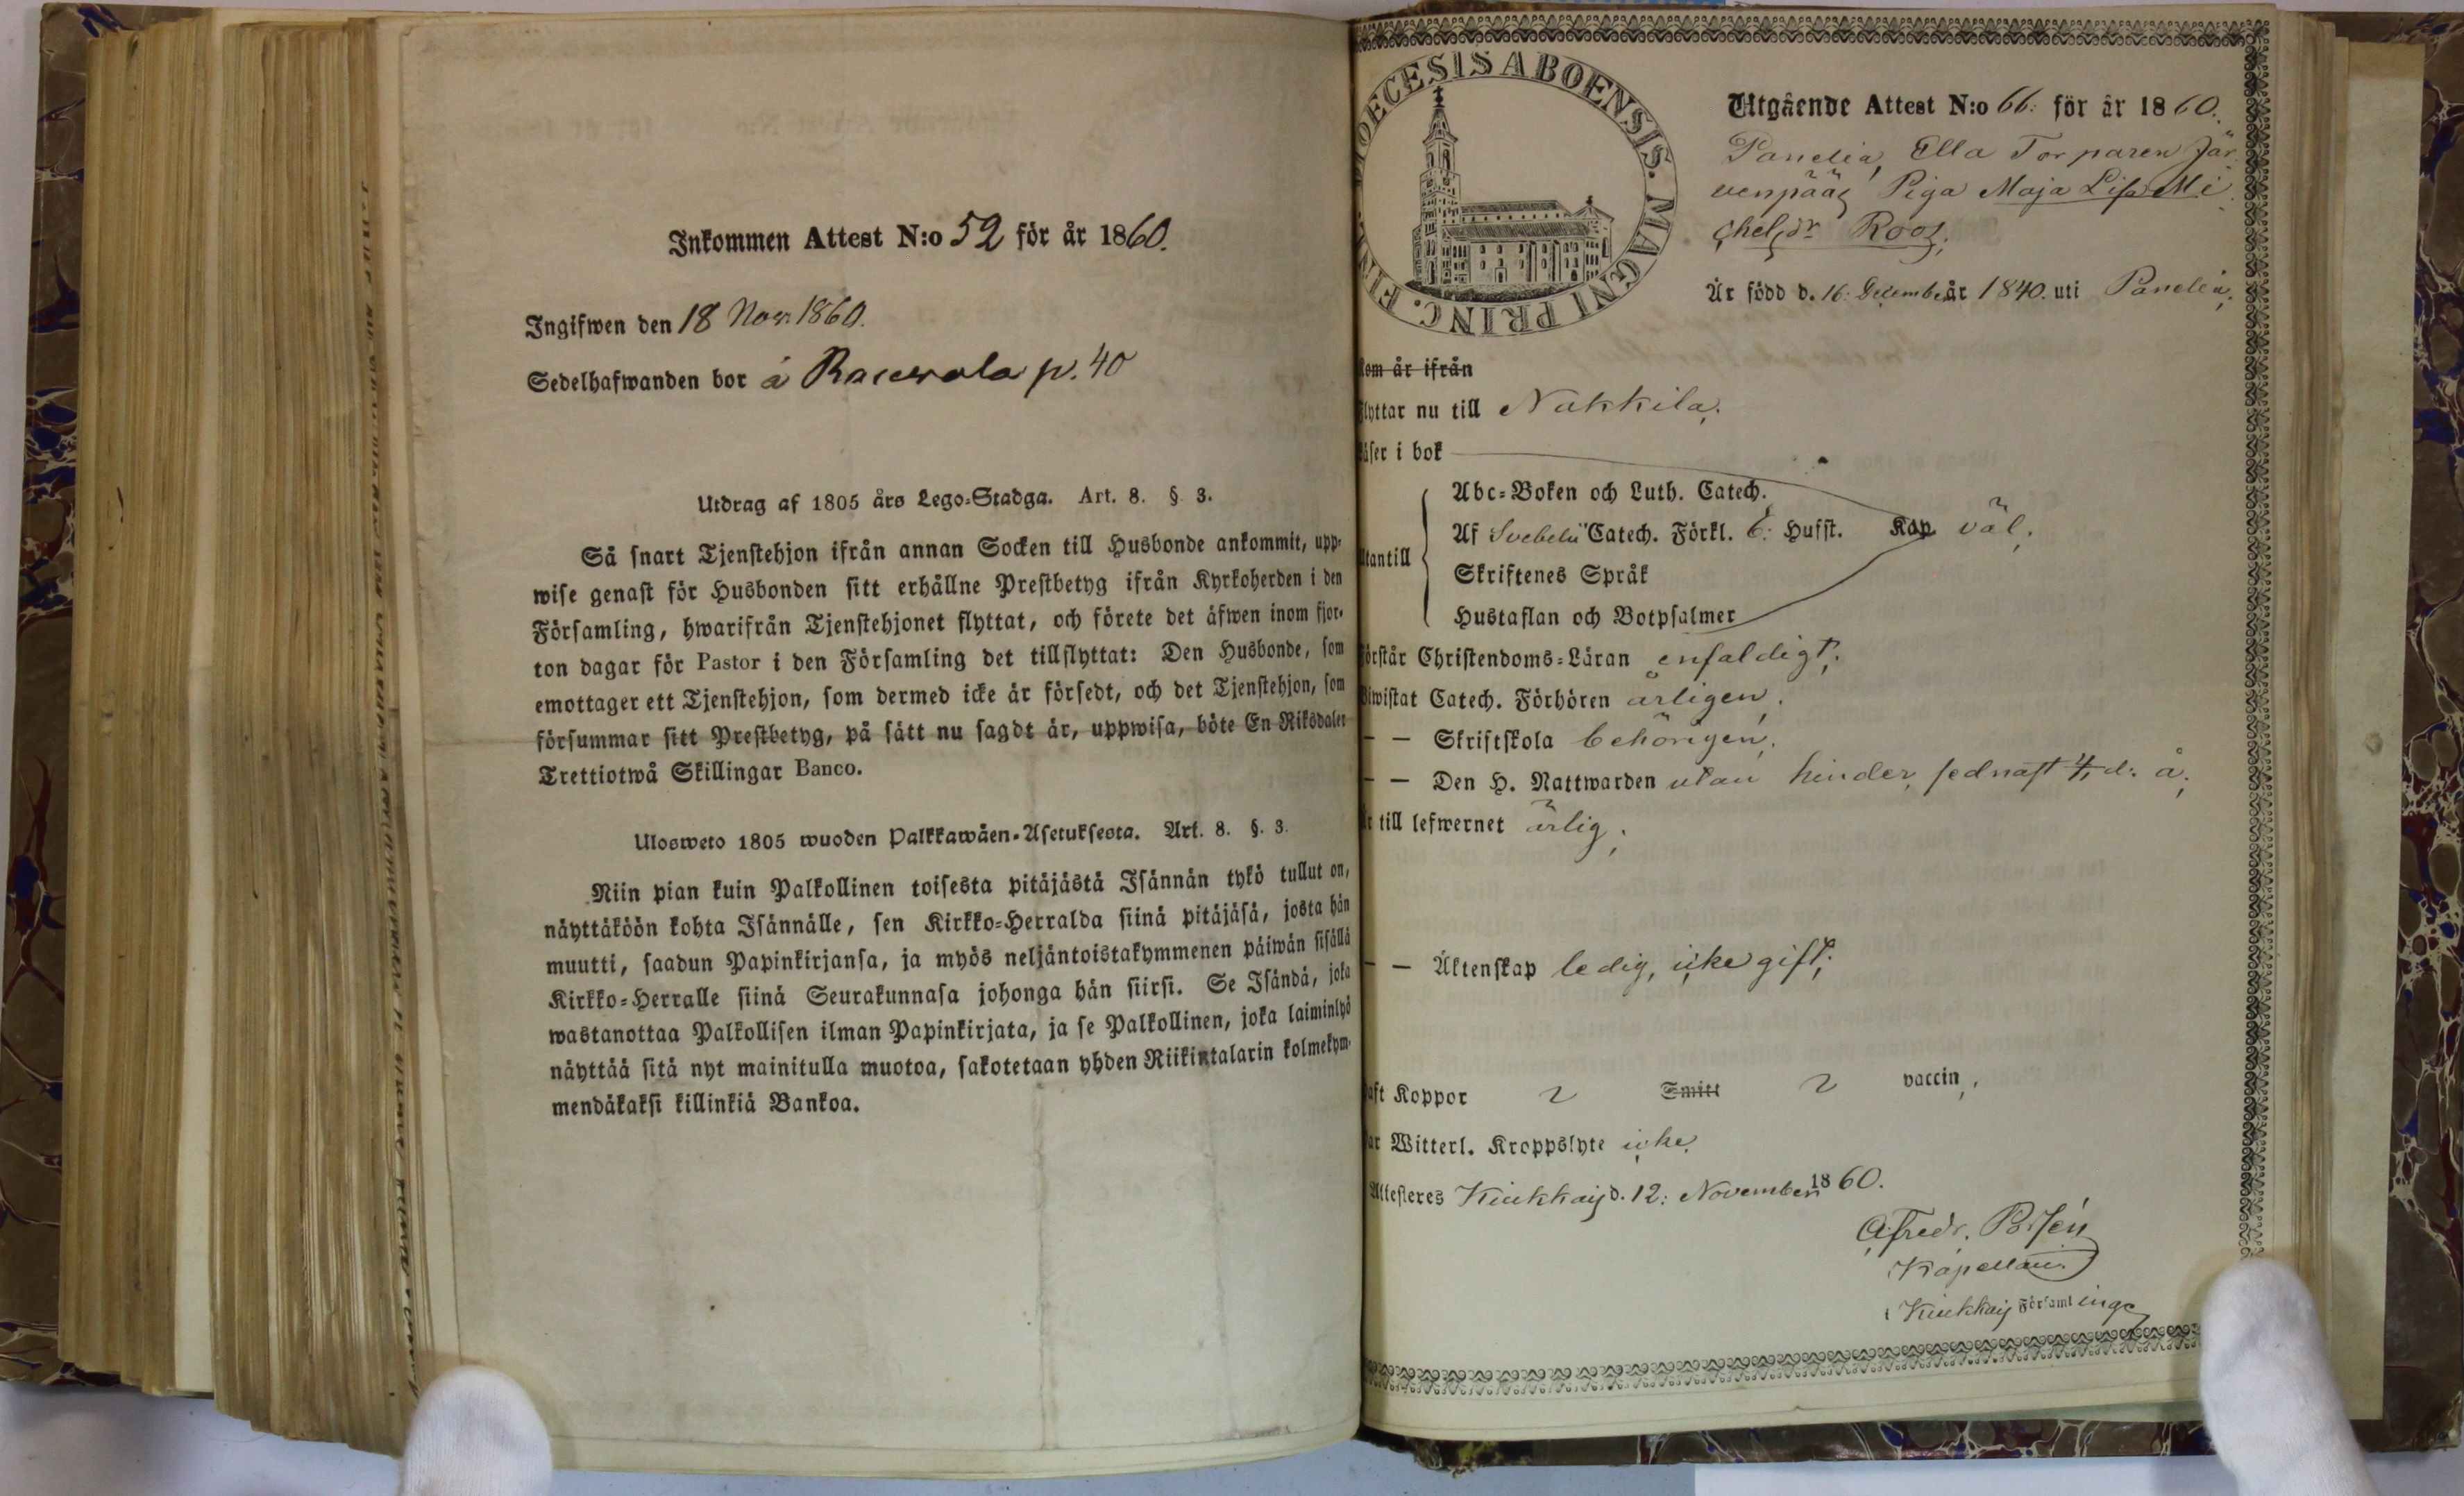 Inkommen Attest N:o 52 för år 1860.
Ingifwen den 18 Nov. 1860.
Sedelhafwanden bor å p. 40
Utdrag af 1805 års Lego-Stadga. Art. 8. § 3.
Så snart Tjenstehjon ifrån annan Socken till Husbonde ankommit, upp-
wise genast för Husbonden sitt erhållne Prestbetyg ifrån Kyrkoherden i den
Församling, hwarifrån Tjenstehjonet flyttat, och förete det äfwen inom fjor-
ton dagar för Pastor i den Församling det tillflyttat: Den Husbonde, som
emottager ett Tjenstehjon, som dermed icke är försedt, och det Tjenstehjon, som
försummar sitt Prestbetyg, på sätt nu sagdt är, uppwisa, böte En Riksdaler
Trettiotwå Skillingar Banco.
Ulosweto 1805 wuoden Palkkawäen-Asetuksesta. Art. 8. §. 3.
Niin pian kuin Palkollinen toisesta pitäjästä Isännän tykö tullut on,
näyttäköön kohta Isännälle, sen Kirkko-Herralda siinä pitäjäsä, josta hän
muutti, saadun Papinkirjansa, ja myös neljäntoistakymmenen päiwän sisällä
Kirkko-Herralle siinä Seurakunnasa johonga hän siirsi. Se Isändä, joka
wastanottaa Palkollisen ilman Papinkirjata, ja se Palkollinen, joka laiminlyö
näyttää sitä nyt mainitulla muotoa, sakotetaan yhden Riikintalarin kolmekym-
mendäkaksi killinkiä Bankoa.
DIOECESIS ABOENSIS. MAGNI PRINC. FIN
Utgående Attest N:o 66: för år 1860.
Panelia, Ella Torparen Jär-
venpääs Piga Maja Lisa Mi-
chelsdr Roos;
Är född d. 16: December år 1840. uti Panelia;
kom är ifrån
Flyttar nu till Nakkila;
Läser i bok
Abc-Boken och Luth. Catech.
Af Svebelii Catech. Förkl. 6: Hufst. Kap. väl;
Utantill
Skriftenes Språk
Hustaflan och Botpsalmer
Förstår Christendoms-Läran enfaldigt;
Biwistat Catech. Förhören årligen;
— — Skriftskola behörigen;
— — Den H. Nattwarden utan hinder, sednast d: å;
Är till lefwernet ärlig;
— — Äktenskap ledig, icke gift;
haft Koppor Smitt vaccin;
har Witterl. Kroppslyte icke;
Attesteres Kiukkais d. 12: November 1860.
Alfredr.
Kapellan.
Kiukkais Församlings